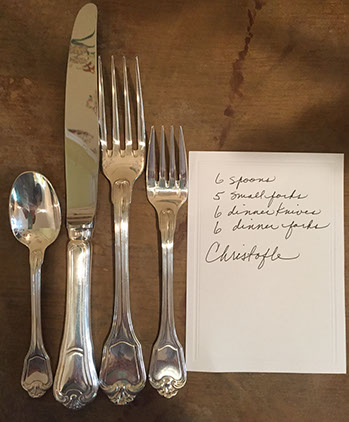 6 spoons
5 small forks
6 dinner knives
6 dinner forks
Christofle